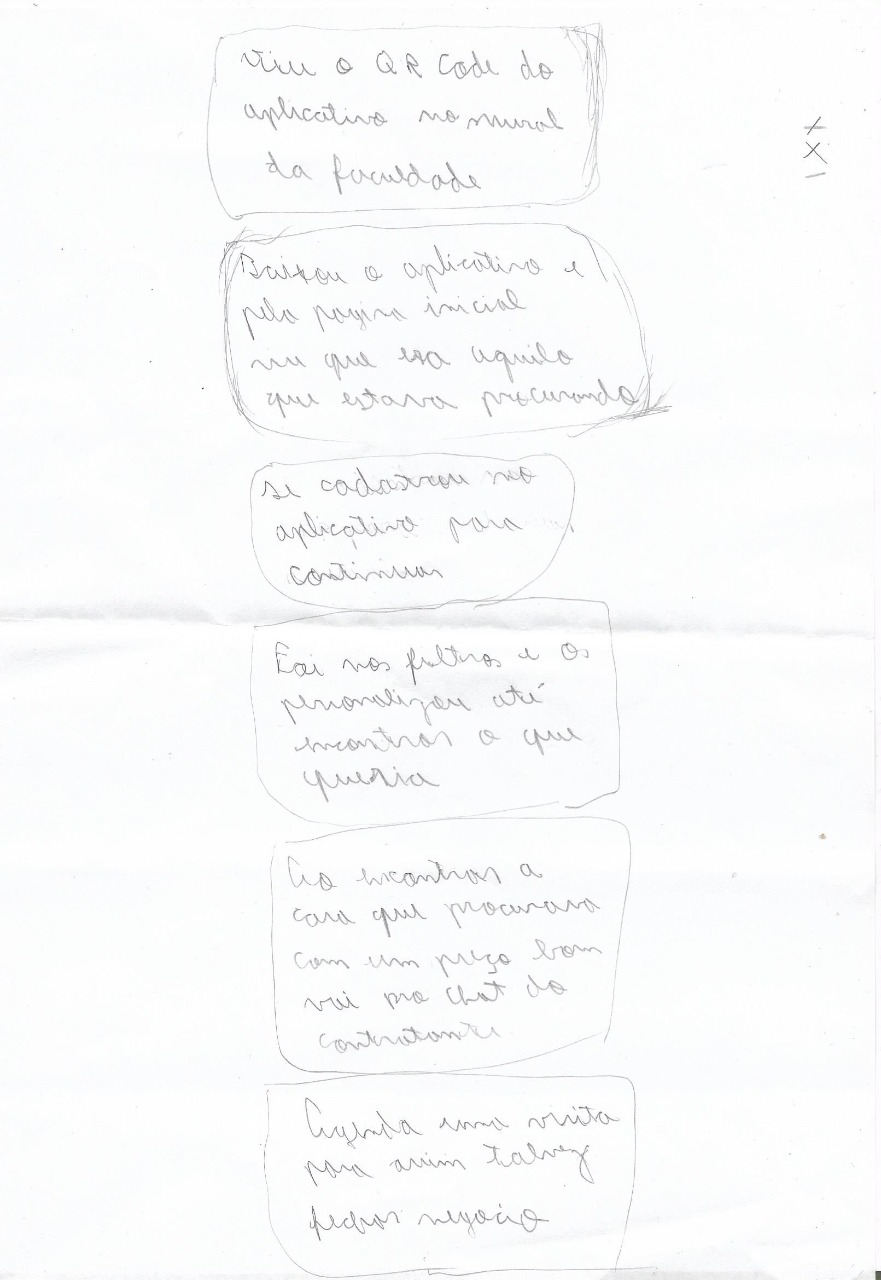 Viu o QR Code do
aplicativo no mural
da faculdade
Baixou o aplicativo e
pela pagina inicial
viu que era aquilo
que estava procurando
se cadastrou no
aplicativo para
continuar
Foi nos filtros e os
personalizou até
encontrar o que
queria
Ao encontrar a
casa que procurava
com um preço bom
vai pro chat do
contratante
Agenda uma visita
para assim talvez
fechar negocio